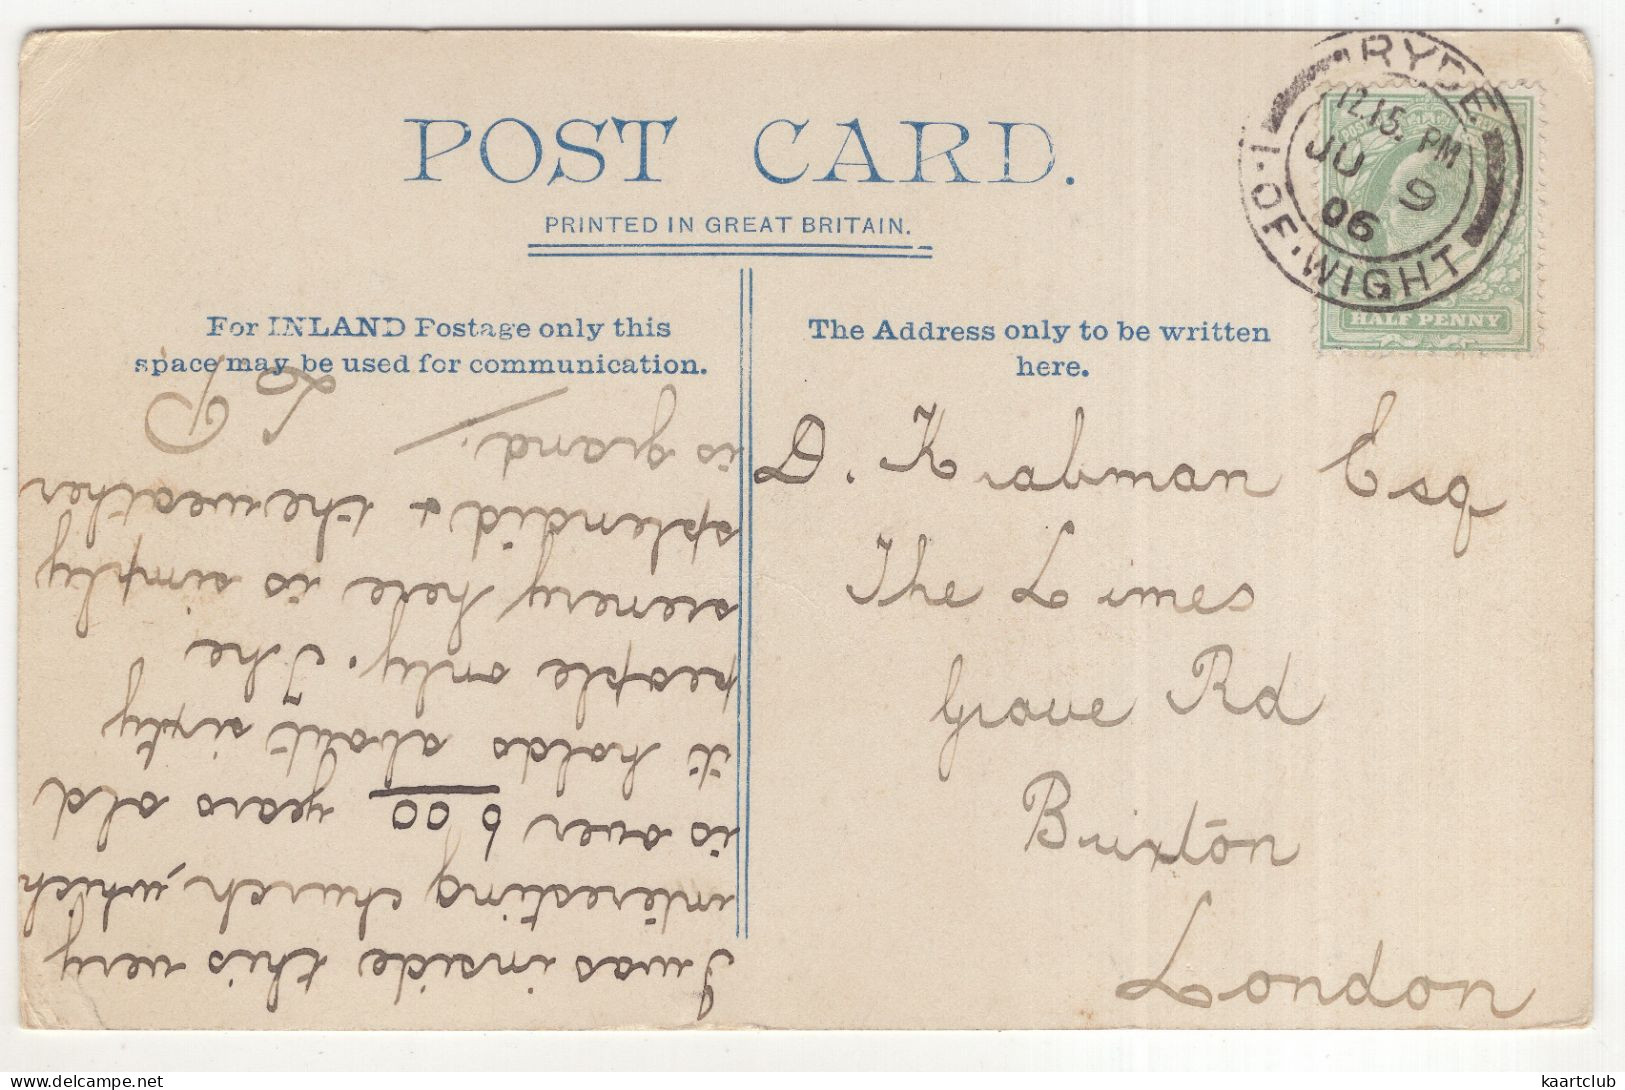 POST CARD.
PRINTED IN GREAT BRITAIN.
For INLAND Postage only this
space may be used for communication.
The Address only to be written
here.
RYDE
12.15. PM
JU 9
06
I. OF. WIGHT
HALF PENNY
D. Krabman Esq
The Limes
Grove Rd
Brixton
London
I was inside this very
interesting church, which
is over 600 years old
it holds about sixty
people only. The
scenery here is simply
splendid & the weather
is grand.
kaartclub